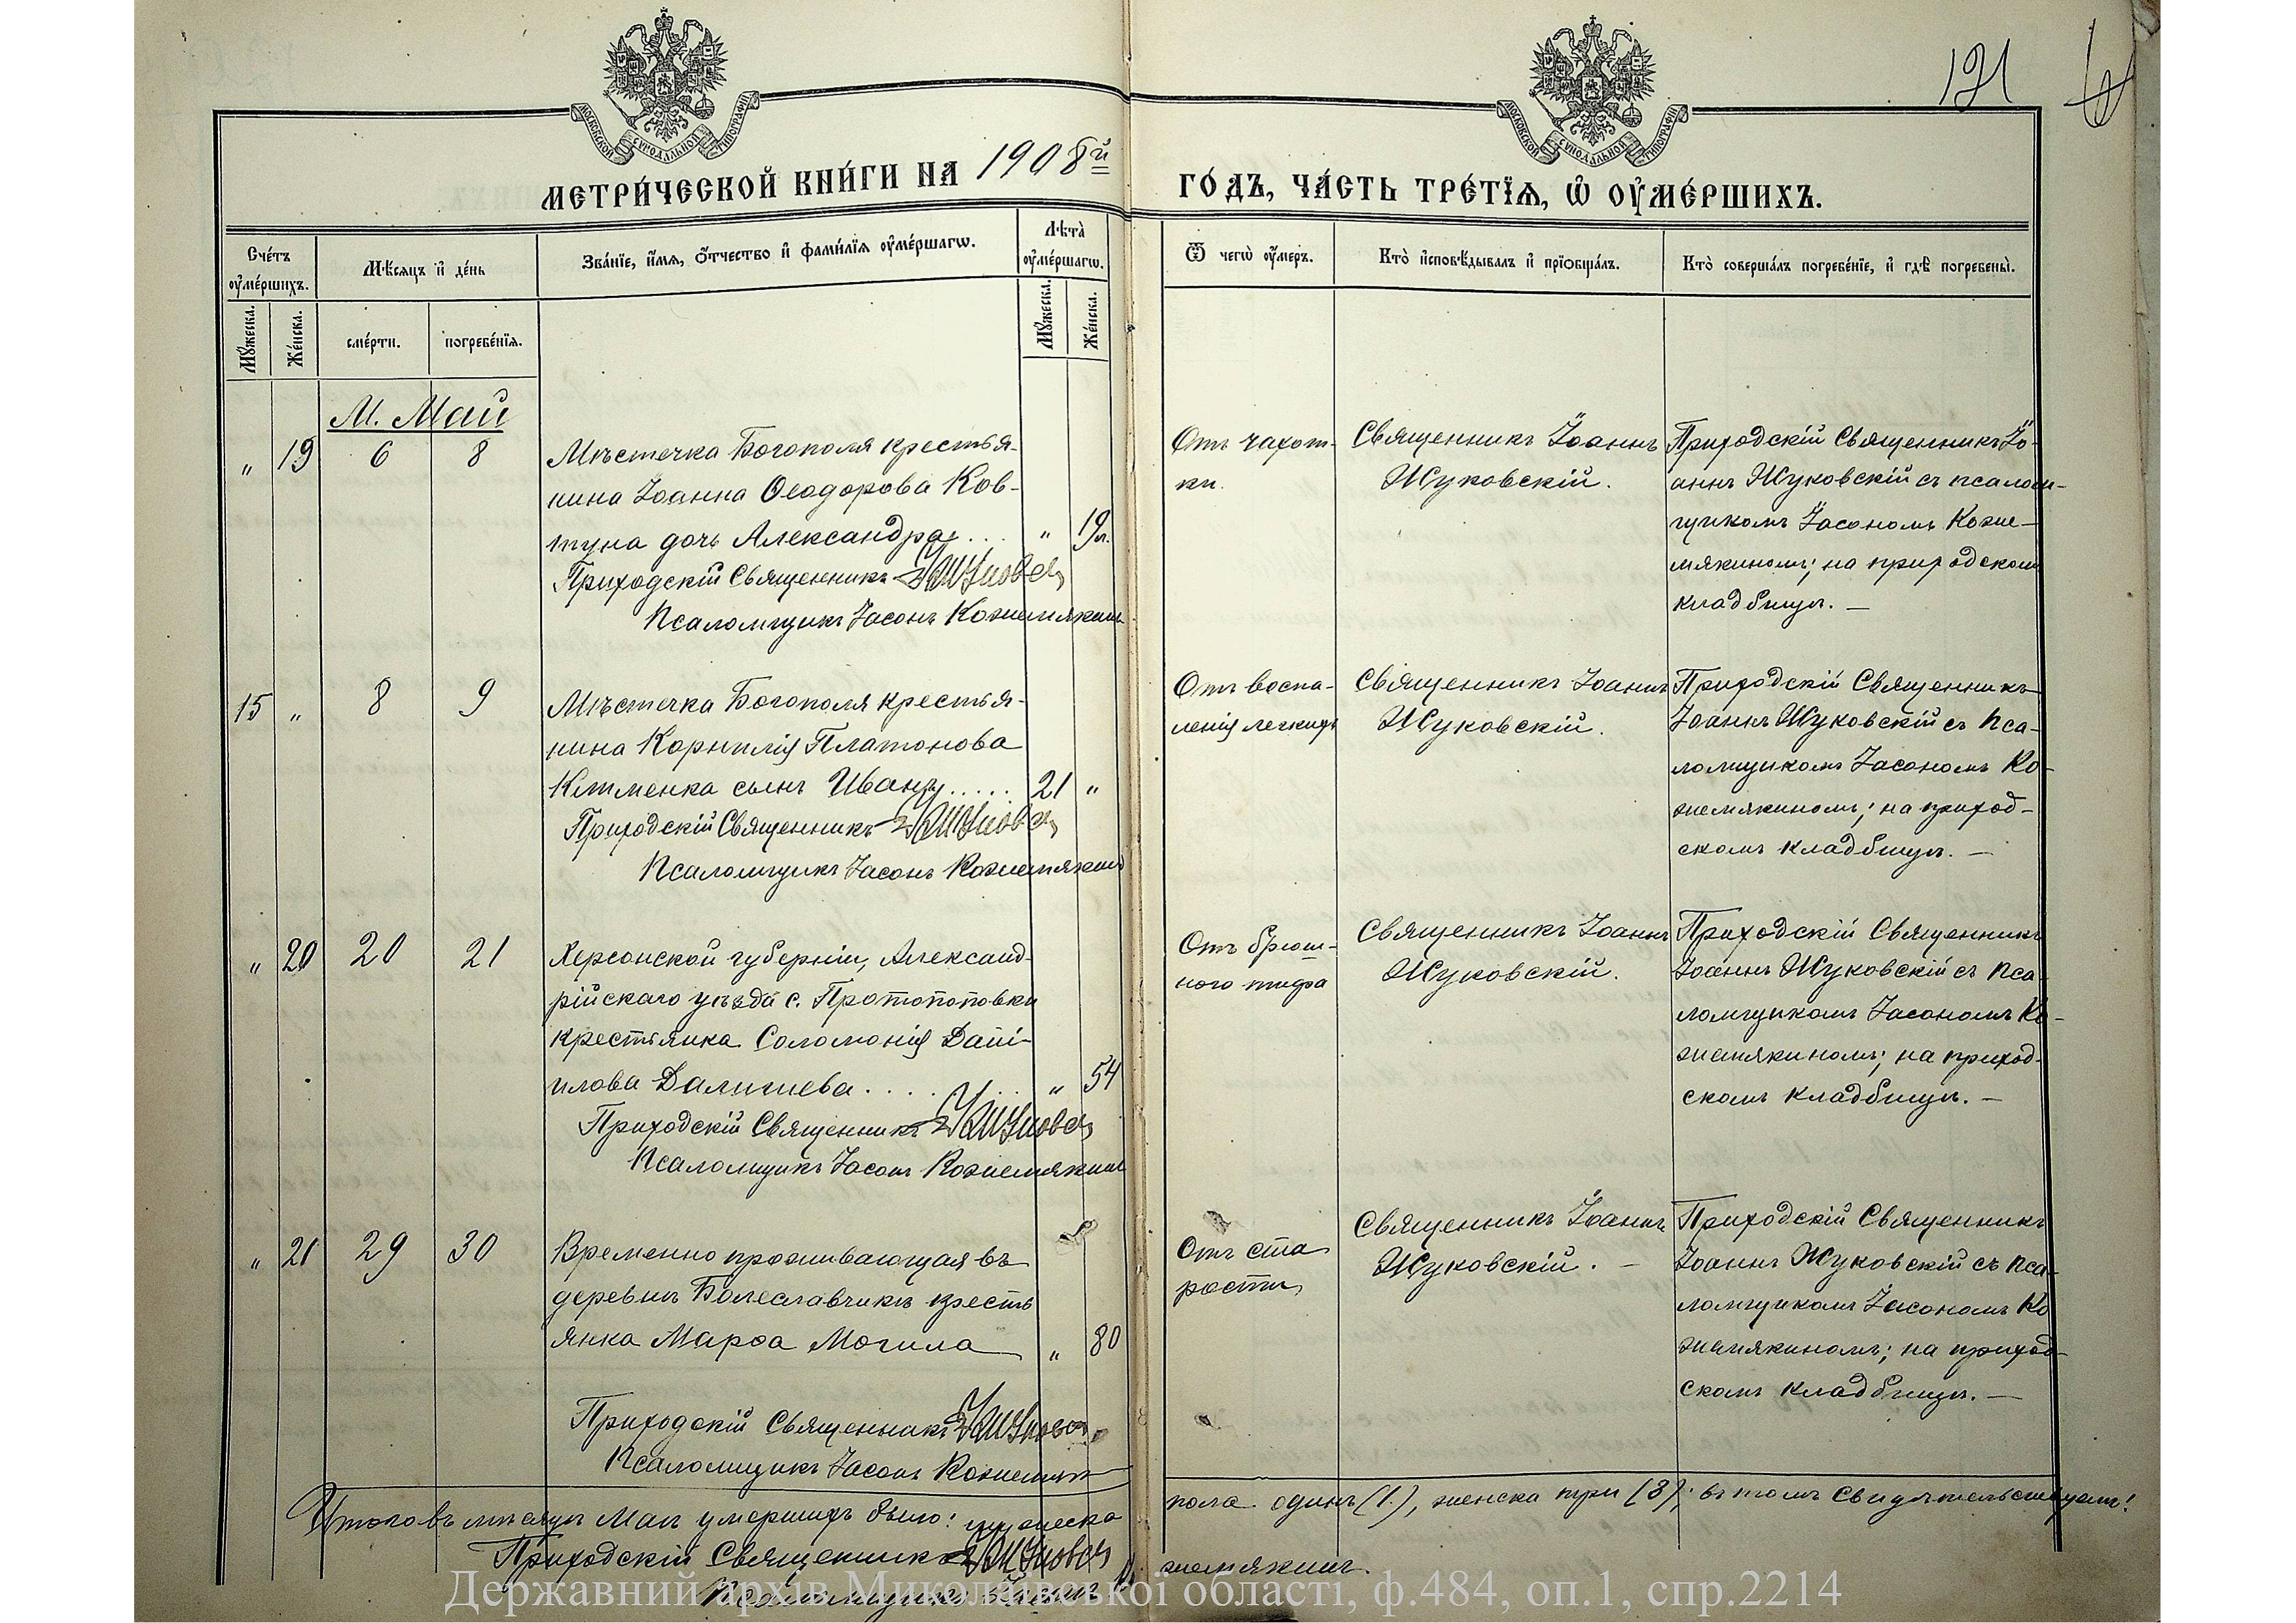 МОСКОВСКОЙ СУНОДАЛЬНОЙ ТИПОГРАФІИ
МОСКОВСКОЙ СУНОДАЛЬНОЙ ТИПОГРАФІИ
121
МЕТРИ́ЧЕСКОЙ КНИ́ГИ НА 1908й ГО́ДЪ, ЧА́СТЬ ТРЕ́ТЇѦ, Ѽ ОУ҆МЕ́РШИХЪ.
Сче́тъ оу҆ме́ршихъ.
Мꙋ́жеска.
Же́нска.
Мѣ́сѧцъ и҆ де́нь
сме́рти.
погребе́нїѧ.
Зва́нїе, и҆́мѧ, ѻ҆́тчество и҆ фами́лїѧ оу҆ме́ршагѡ.
Лѣ́та̀ оу҆ме́ршагѡ.
Мꙋ́жеска.
Же́нска.
Ѿ чегѡ̀ оу҆́меръ.
Кто̀ и҆сповѣ́дывалъ и҆ прїѻбща́лъ.
Кто̀ соверша́лъ погребе́нїе, и҆ гдѣ̀ погребены̀.
М. Май
" 19 6 8
Мѣстечка Богополя крестья-
нина Іоанна Ѳеодорова Ков-
туна дочь Александра . . . " 19 л.
Приходскій Священникъ
Псаломщикъ Іасонъ Кожемякинъ
Отъ чахот-
ки.
Священникъ Іоаннъ
Жуковскій.
Приходскій Священникъ Іо-
аннъ Жуковскій съ псалом-
щикомъ Іасономъ Коже-
мякиномъ; на приходскомъ
кладбищѣ. —
15 " 8 9
Мѣстечка Богополя крестья-
нина Корнилія Платонова
сынъ Иванъ . . . . . 21 "
Приходскій Священникъ
Псаломщикъ Іасонъ Кожемякинъ
Отъ воспа-
ленія легкихъ
Священникъ Іоаннъ
Жуковскій.
Приходскій Священникъ
Іоаннъ Жуковскій съ Пса-
ломщикомъ Іасономъ Ко-
жемякиномъ; на приход-
скомъ кладбищѣ. —
" 20 20 21
Херсонской губерніи, Александ-
рійскаго уѣзда с. Протопоповки
крестьянка Соломонія Дані-
илова . . . . " 54
Приходскій Священникъ
Псаломщикъ Іасонъ Кожемякинъ
Отъ брюш-
ного тифа
Священникъ Іоаннъ
Жуковскій.
Приходскій Священникъ
Іоаннъ Жуковскій съ Пса-
ломщикомъ Іасономъ Ко-
жемякиномъ; на приход-
скомъ кладбищѣ. —
" 21 29 30
Временно проживающая въ
деревнѣ Болеславчикъ кресть
янка Марѳа Могила " 80
Приходскій Священникъ
Псаломщикъ Іасонъ
Отъ ста
рости
Священникъ Іоаннъ
Жуковскій. —
Приходскій Священникъ
Іоаннъ Жуковскій съ Пса-
ломщикомъ Іасономъ Ко
жемякиномъ; на приход
скомъ кладбищѣ. —
Итого въ мѣсяцѣ Маѣ умершихъ было: мужеска пола одинъ (1), женска три (3); въ томъ свидѣтельствуемъ!
Приходскій Священникъ
Псаломщикъ Іасонъ Кожемякинъ.
Державний архів Миколаївської області, ф.484, оп.1, спр.2214